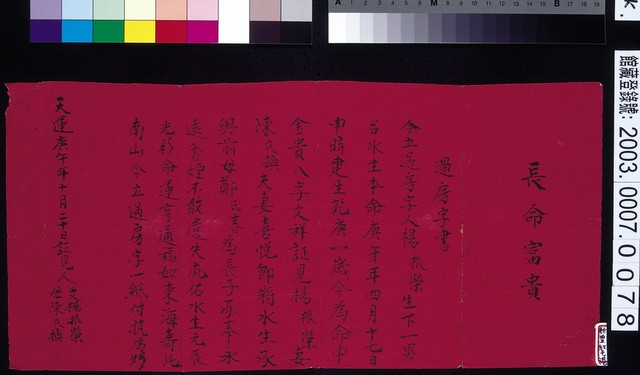 長命富貴
過房字書
今立過房字人楊振榮生下一男
名水生本命庚午年四月十七日
申時建生乾庚一歲今為命中
金貴八字欠祥証見楊振榮妻
陳氏 夫妻喜悅 將水生承
與前母鄭氏 為長子 奉永
遠香煙不敢 失庇佑水生元辰
光彩命運亨通福如東海壽比
南山今立過房字一紙付執為炤
天運庚午年十月二十日証見人 父楊振榮
母陳氏
館藏登錄號: 2003.0007.0078
A 1 2 3 4 5 6 M 8 9 10 11 12 13 14 15 B 17 18 19
K.